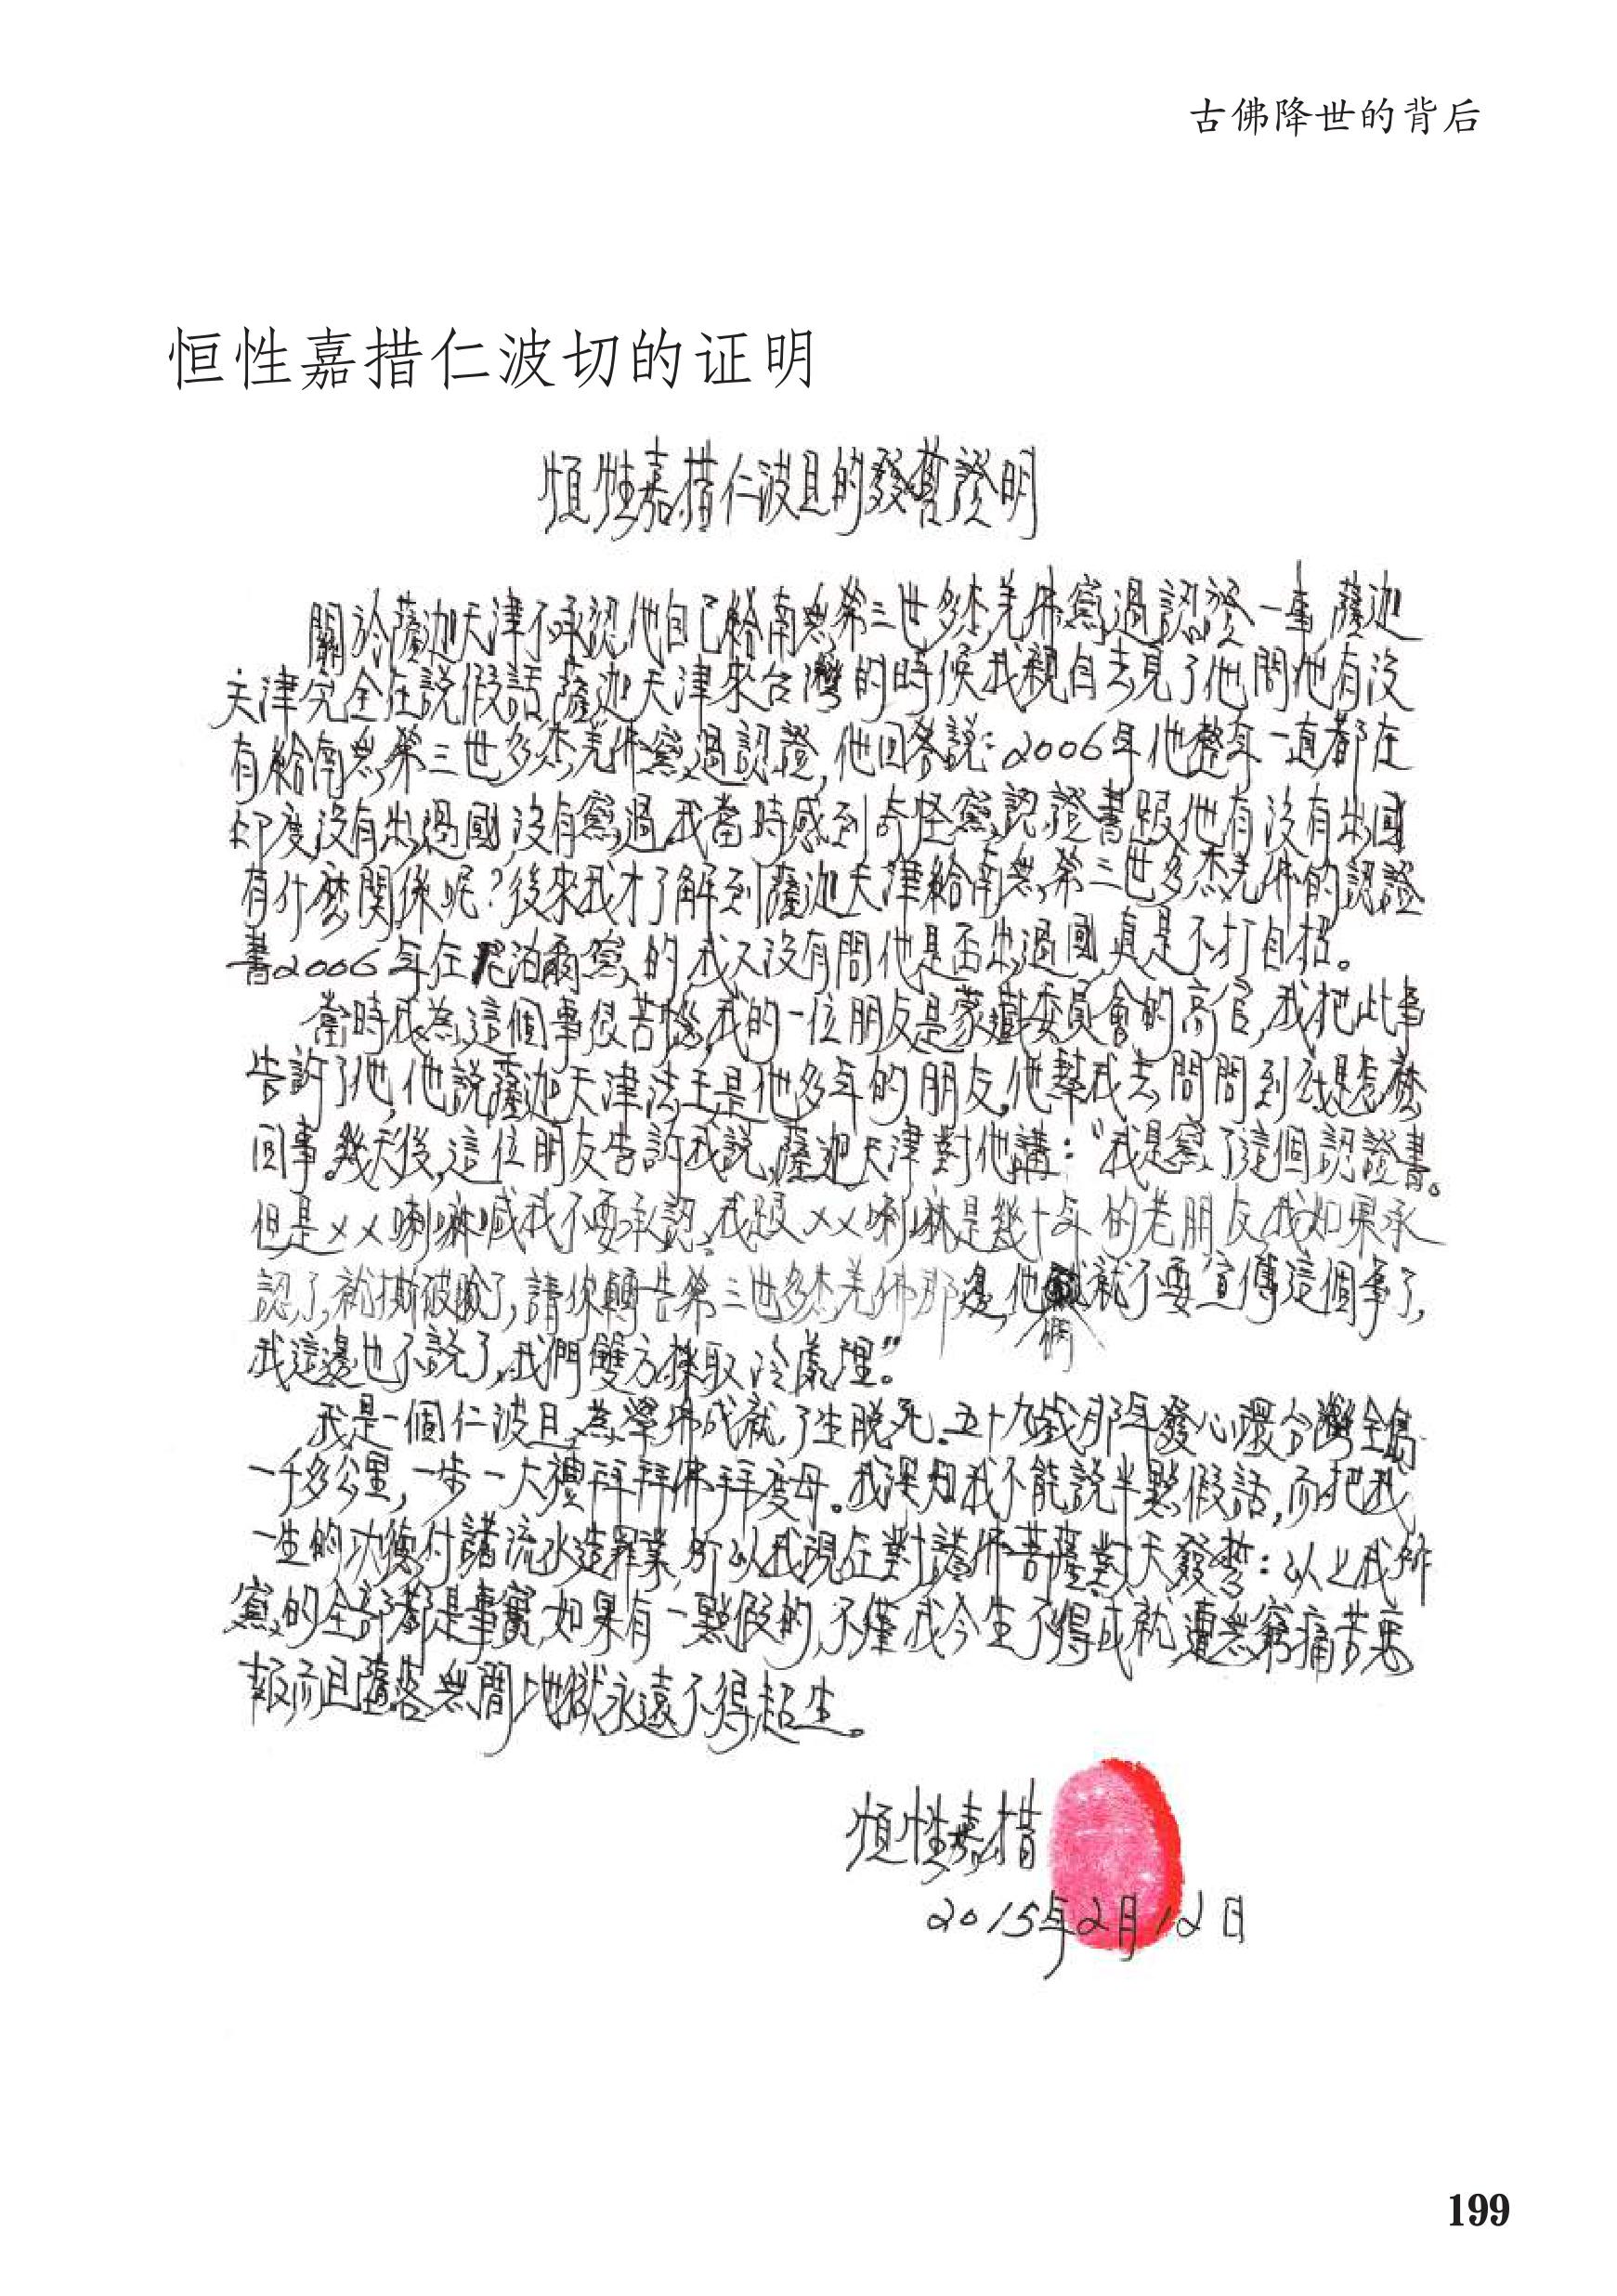 古佛降世的背后
恒性嘉措仁波切的证明
恒性嘉措仁波且的發誓證明
關於薩迦天津不承認他自己給南無第三世多杰羌佛寫過認證一事薩迦
天津完全在說假話薩迦天津來台灣的時候我親自去見了他問他有沒
有給南無第三世多杰羌佛寫過認證,他回答說:2006年他整年一直都在
印度沒有出過國沒有寫過我當時感到奇怪寫認證書跟他有沒有出國
有什麼關係呢?後來我才了解到薩迦天津給南無第三世多杰羌佛的認證
書2006年在尼泊爾寫的我又沒有問他是否出過國真是不打自招。
當時我為這個事很苦惱,我的一位朋友是蒙藏委員會的高官,我把此事
告許了他,他說薩迦天津法王是他多年的朋友,他幫我去問問到底是怎麼
回事幾天後,這位朋友告許我說,薩迦天津對他講:“我是寫了這個認證書。
但是××喇嘛喊我不要承認,我跟××喇嘛是幾十年的老朋友我如果承
認了,就撕破臉了,請你轉告第三世多杰羌佛那邊,他們就不要宣傳這個事了,
我這邊也不說了,我們雙方採取冷處理。”
我是一個仁波且為學佛成就,了生脫死.五十九歲那年發心環台灣全島
一千多公里,一步一大禮拜拜佛拜度母。我深知我不能說半點假話,而把我
一生的功德付諸流水造罪業所以我現在對諸佛菩薩對天發誓:以上我所
寫的全部都是事實,如果有一點假的,不僅我今生不得成就,遭無窮痛苦惡
報而且墮落無間地獄永遠不得超生。
恒性嘉措
2015年2月12日
199